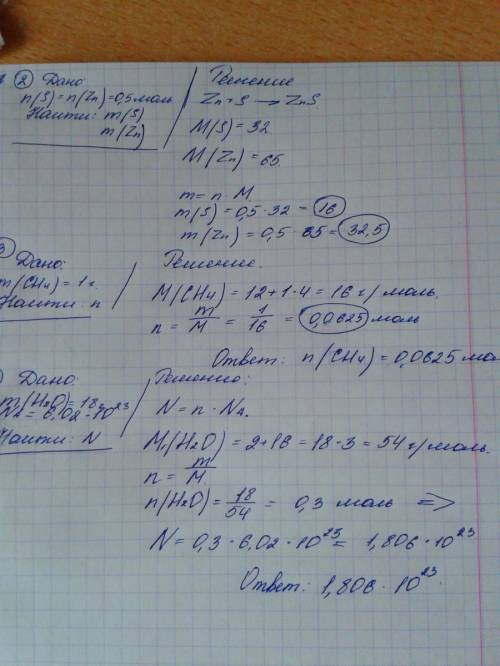 2 Дано:
n(S)=n(Zn)=0,5 моль
Найти: m(S)
m(Zn)
Решение
Zn+S → ZnS
M(S)=32
M(Zn)=65
m= n · M
m(S)=0,5·32=16
m(Zn)=0,5·65=32,5
3
Дано:
m(CH4)=1г.
Найти: n
Решение.
M(CH4)=12+1·4=16г/моль.
n = m/M = 1/16 = 0,0625 моль
Ответ: n(CH4)=0,0625 мо
Дано:
m(H2O)=18г
NA=6,02·10²³
Найти: N
Решение:
N=n·NA.
M(H2O)=2+16=18·3=54г/моль.
n = m/M
n(H2O)=18/54=0,3 моль =>
N=0,3·6,02·10²³=1,806·10²³
Ответ: 1,806·10²³.